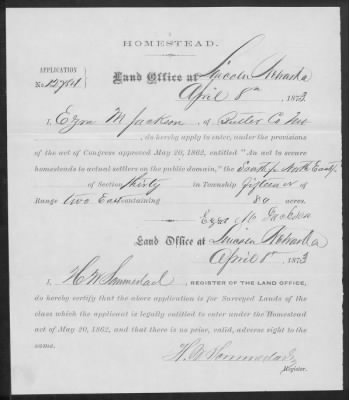 HOMESTEAD.
APPLICATION
No. 12784
Land Office at Lincoln Nebraska
April 8th 1873
I, Ezra M Jackson, of Butler Co Neb
, do hereby apply to enter, under the provisions
of the act of Congress approved May 20, 1862, entitled "An act to secure
homesteads to actual settlers on the public domain," the South ½ North East ¼
of Section thirty in Township fifteen N of
Range two East containing 80 acres.
Ezra M Jackson
Land Office at Lincoln Nebraska
April 8th 1873
I, REGISTER OF THE LAND OFFICE,
do hereby certify that the above application is for Surveyed Lands of the
class which the applicant is legally entitled to enter under the Homestead
act of May 20, 1862, and that there is no prior, valid, adverse right to the
same.
Register.